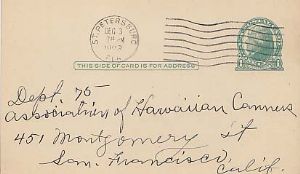 ST. PETERSBURG
DEC 3
FLA.
THIS SIDE OF CARD IS FOR ADDRESS
1 1
Dept 75
Association of Hawaiian Canners
451 Montgomery St
San Francisco,
Calif.